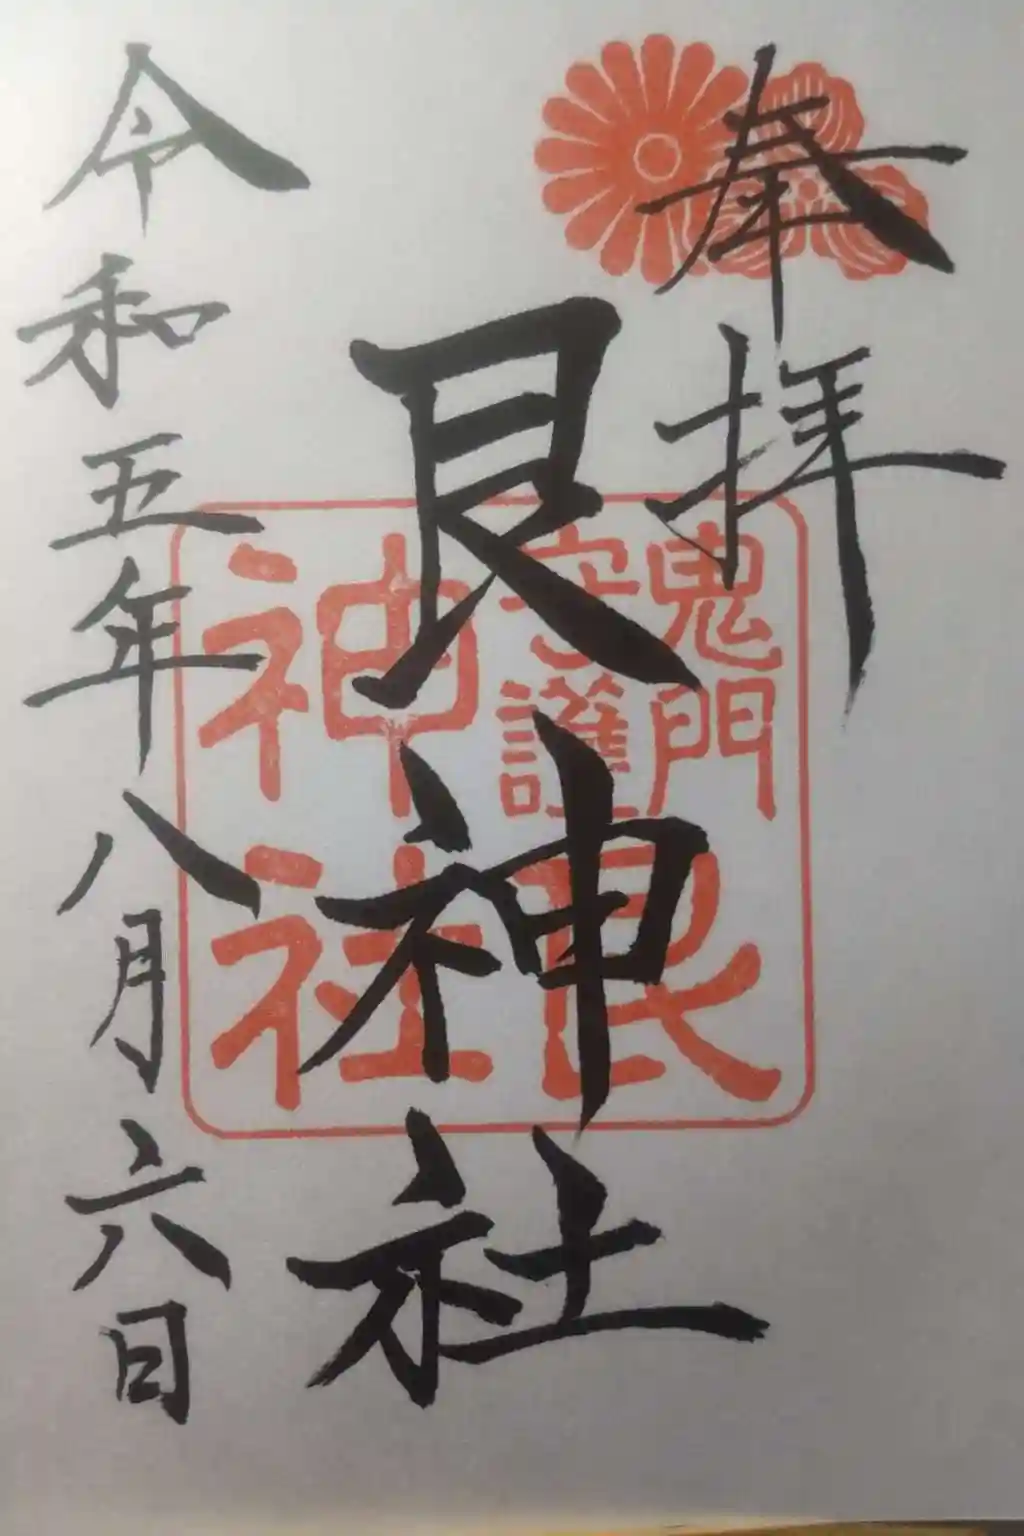 奉拝
艮神社
令和五年八月六日
鬼門
守護
艮
神社